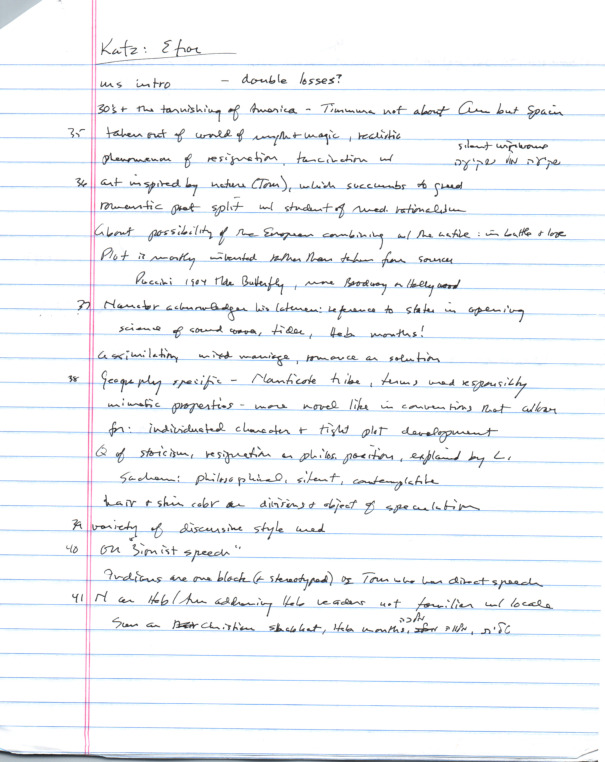 Katz: Efros
ms intro - double losses?
30's + the tarnishing of America - Timmura not about Am but Spain
35 taken out of world of myth + magic, realistic
phenomenon of resignation, fascination w/ silent
36 art inspired by nature (Tom), which succumbs to greed
romantic poet split w/ student of med. rationalism
About possibility of the European combining w/ the native: in battle + love
Plot is mostly invented rather than taken from sources
Puccini 1904 Mde Butterfly, more Broadway or Hollywood
37 Narrator acknowledges his lateness: reference to states in opening
science of sound waves, tides, Heb months!
assimilation, mixed marriage, romance as solution
38 Geography specific - Nanticoke tribe, terms used responsibly
mimetic properties - more novel like in conventions that allow
for: individuated character + tight plot development
Q of stoicism, resignation as philos. position, explained by L.
Sachem: philosophical, silent, contemplative
hair + skin color as divisions + object of speculation
39 variety of discursive style used
40 on "Sionist speech"
Indians are one block (+ stereotyped) vs Tom who has direct speech
41 N as Heb/Am addressing Heb readers not familiar w/ locale
Sun as Christian Sabbath, Heb months,